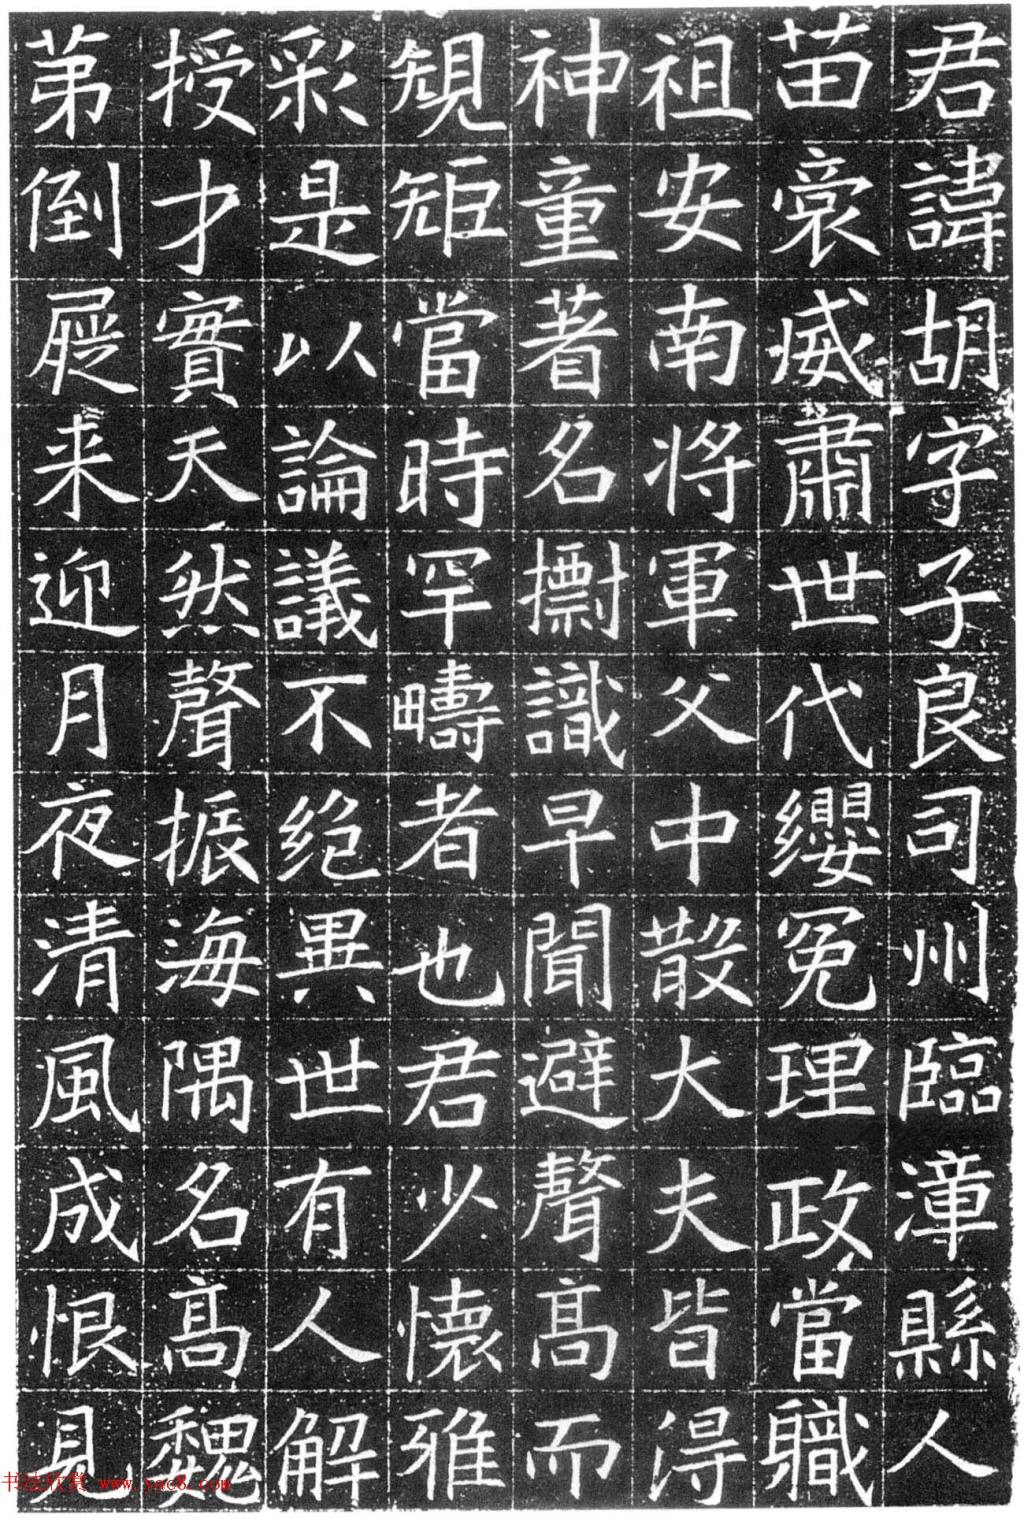 君諱胡字子良司州臨漳縣人
苗裔威肅世代纓冕理政當職
祖安南将軍父中散大夫皆淂
神童著名識早聞避聲髙而
規矩當時罕疇者也君少懐雅
彩是以論議不絕異世有人解
授才實天然聲振海隅名髙魏
苐倒屣来迎月夜清風成恨見
书法欣赏 www.yac8.com